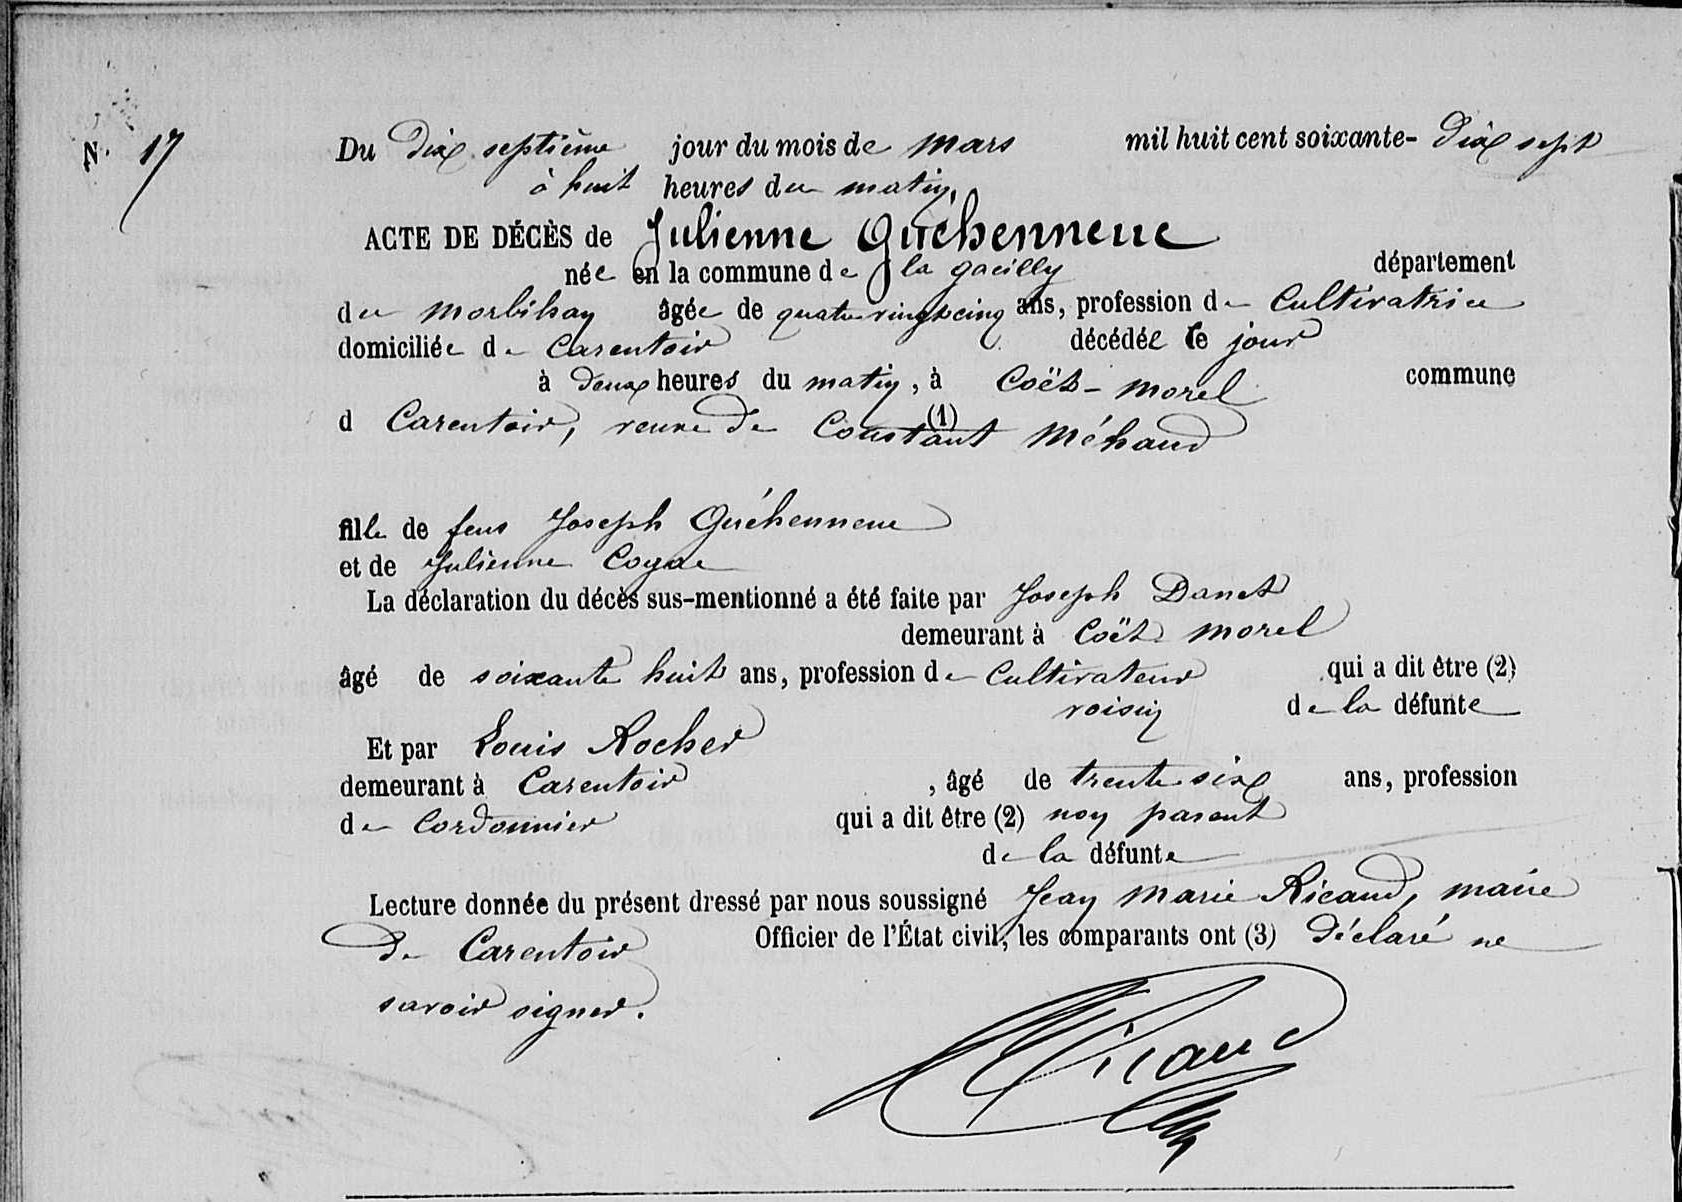 N. 17
Du Dix septième jour du mois de mars mil huit cent soixante-Dix sept
à huit heures du matin,
ACTE DE DÉCÈS de Julienne Guéhenneuc
née en la commune de la gacilly département
du morbihan âgée de quatre vingt cinq ans, profession de Cultivatrice
domiciliée de Carentoir décédée ce jour
à Deux heures du matin, à Coët-morel commune
d Carentoir, veuve de Constant Méhaud
(1)
fille de feus Joseph Guéhenneuc
et de Julienne Coyac
La déclaration du décès sus-mentionné a été faite par Joseph Danet
demeurant à Coët morel
âgé de soixante huit ans, profession de Cultivateur qui a dit être (2)
voisin de la défunte
Et par Louis Rocher
demeurant à Carentoir, âgé de trente six ans, profession
de Cordonnier qui a dit être (2) non parent
de la défunte
Lecture donnée du présent dressé par nous soussigné Jean Marie Ricaud, maire
De Carentoir Officier de l'État civil, les comparants ont (3) Déclaré ne
savoir signer.
Ricaud